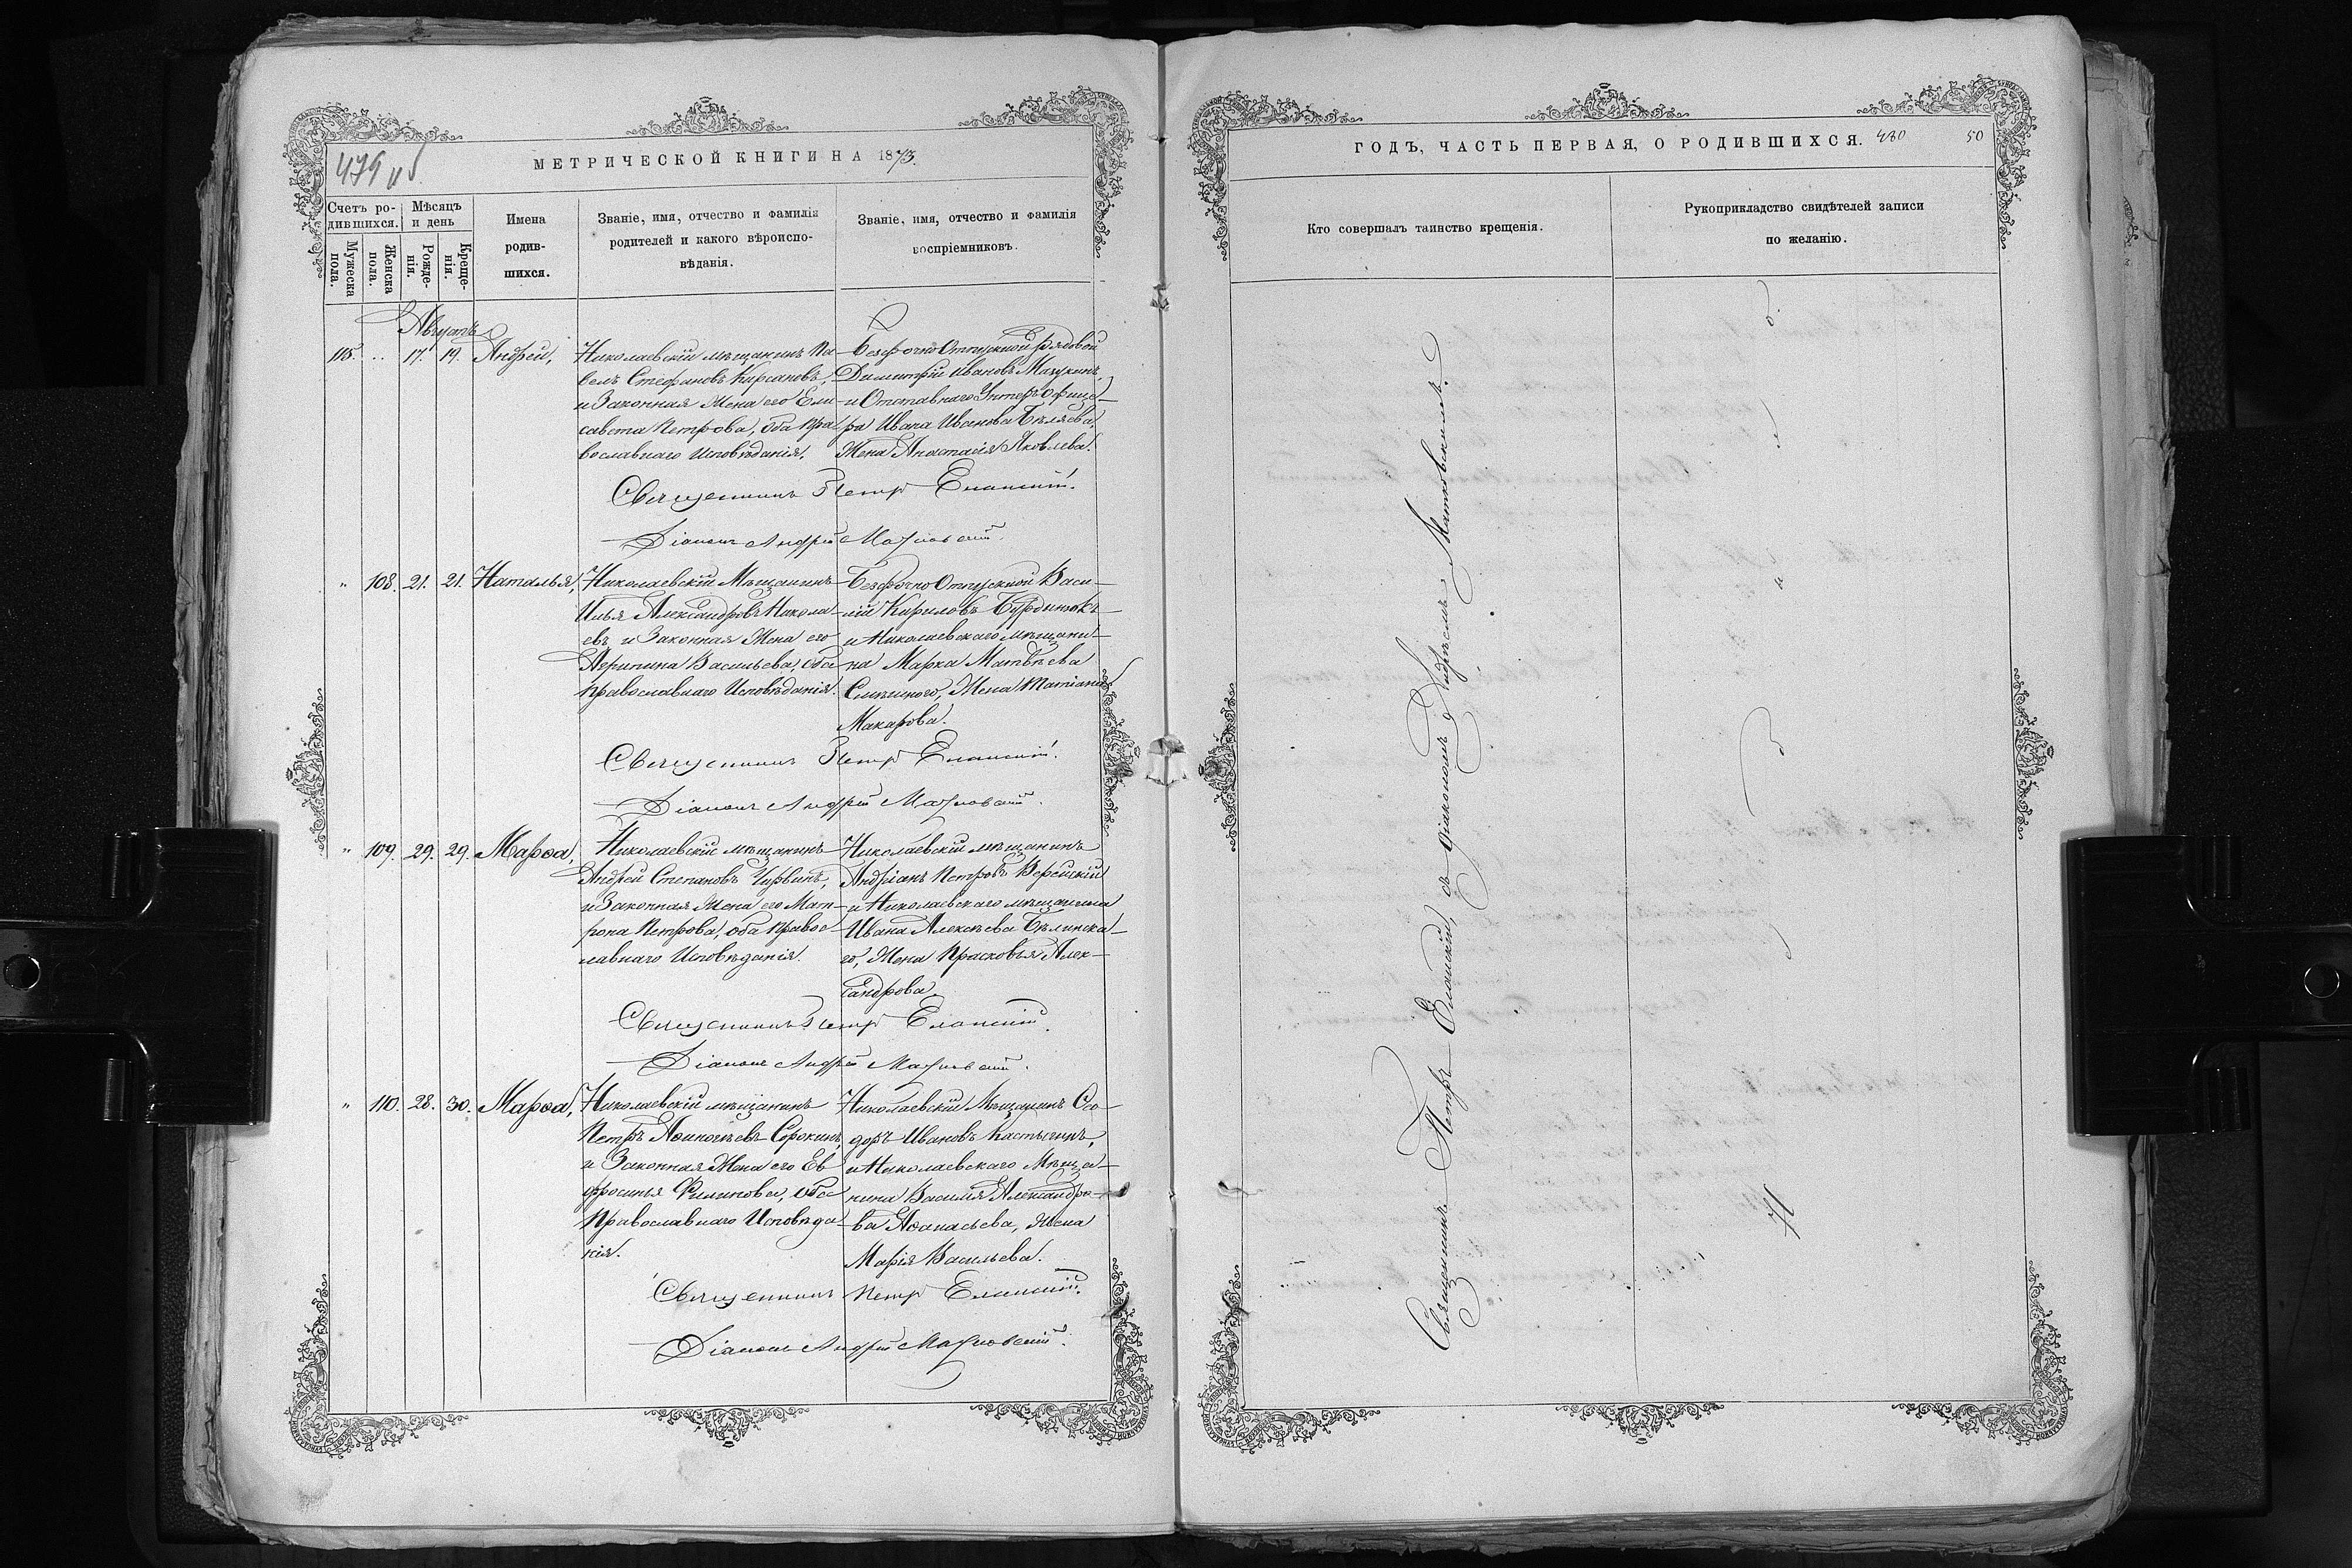 479 об
МЕТРИЧЕСКОЙ КНИГИ НА 1873.
Счетъ ро-
дившихся.
Мѣсяцъ
и день
Мужеска пола.
Женска пола.
Рожде-
нія.
Креще-
нія.
Имена
родив-
шихся.
Званіе, имя, отчество и фамилія
родителей и какого вѣроиспо-
вѣданія.
Званіе, имя, отчество и фамилія
воспріемниковъ.
Августъ
115. " 17. 19. Андрей,
Николаевскій мѣщанинъ Па-
велъ Стефановъ Кирсановъ,
и Законная Жена его Ели-
савета Петрова, оба Пра-
вославнаго Исповѣданія.
Безсрочно Отпускной Рядовой
Димитрій Ивановъ Мазукинъ,
и Отставнаго Унтеръ Офице-
ра Ивана Иванова Бѣляева,
Жена Анастасія Яковлева.
Священникъ Петръ Еланскій.
Діаконъ Андрей Матновскій.
" 108. 21. 21. Наталья,
Николаевскій Мѣщанинъ
Илья Александровъ Никола-
евъ и Законная Жена его
Агрипина Васильева, оба
православнаго Исповѣданія.
Безсрочно Отпускной Васи-
лій Кириловъ Бурдинюкъ
и Николаевскаго мѣщани-
на Марка Матвѣева
Жена Татіана
Макарова.
Священникъ Петръ Еланскій.
Діаконъ Андрей Матновскій.
" 109. 29. 29. Марѳа,
Николаевскій мѣщанинъ
Андрей Степановъ Чирвинъ,
и Законная Жена его Мат-
рона Петрова, оба Правос-
лавнаго Исповѣданія.
Николаевскій мѣщанинъ
Андріанъ Петровъ Верейскій
и Николаевскаго мѣщанина
Ивана Алексѣева Бѣлинска-
го, Жена Прасковья Алек-
сандрова
Священникъ Петръ Еланскій.
Діаконъ Андрей Матновскій.
" 110. 28. 30. Марѳа,
Николаевскій мѣщанинъ
Петръ Аѳиногеевъ Сорокинъ,
и Законная Жена его Ев-
фросинья Филипова, оба
Православнаго Исповѣда-
нія.
Николаевскій Мѣщанинъ Ѳео-
доръ Ивановъ Кастычинъ,
и Николаевскаго Мѣща-
нина Василія Александро-
ва Аѳанасьева, жена
Марія Васильева.
Священникъ Петръ Еланскій.
Діаконъ Андрей Матновскій.
ГОДЪ, ЧАСТЬ ПЕРВАЯ, О РОДИВШИХСЯ. 480 50
Кто совершалъ таинство крещенія.
Рукоприкладство свидѣтелей записи
по желанію.
Священникъ Петръ Еланскій, съ діакономъ Андреемъ Матновскимъ.